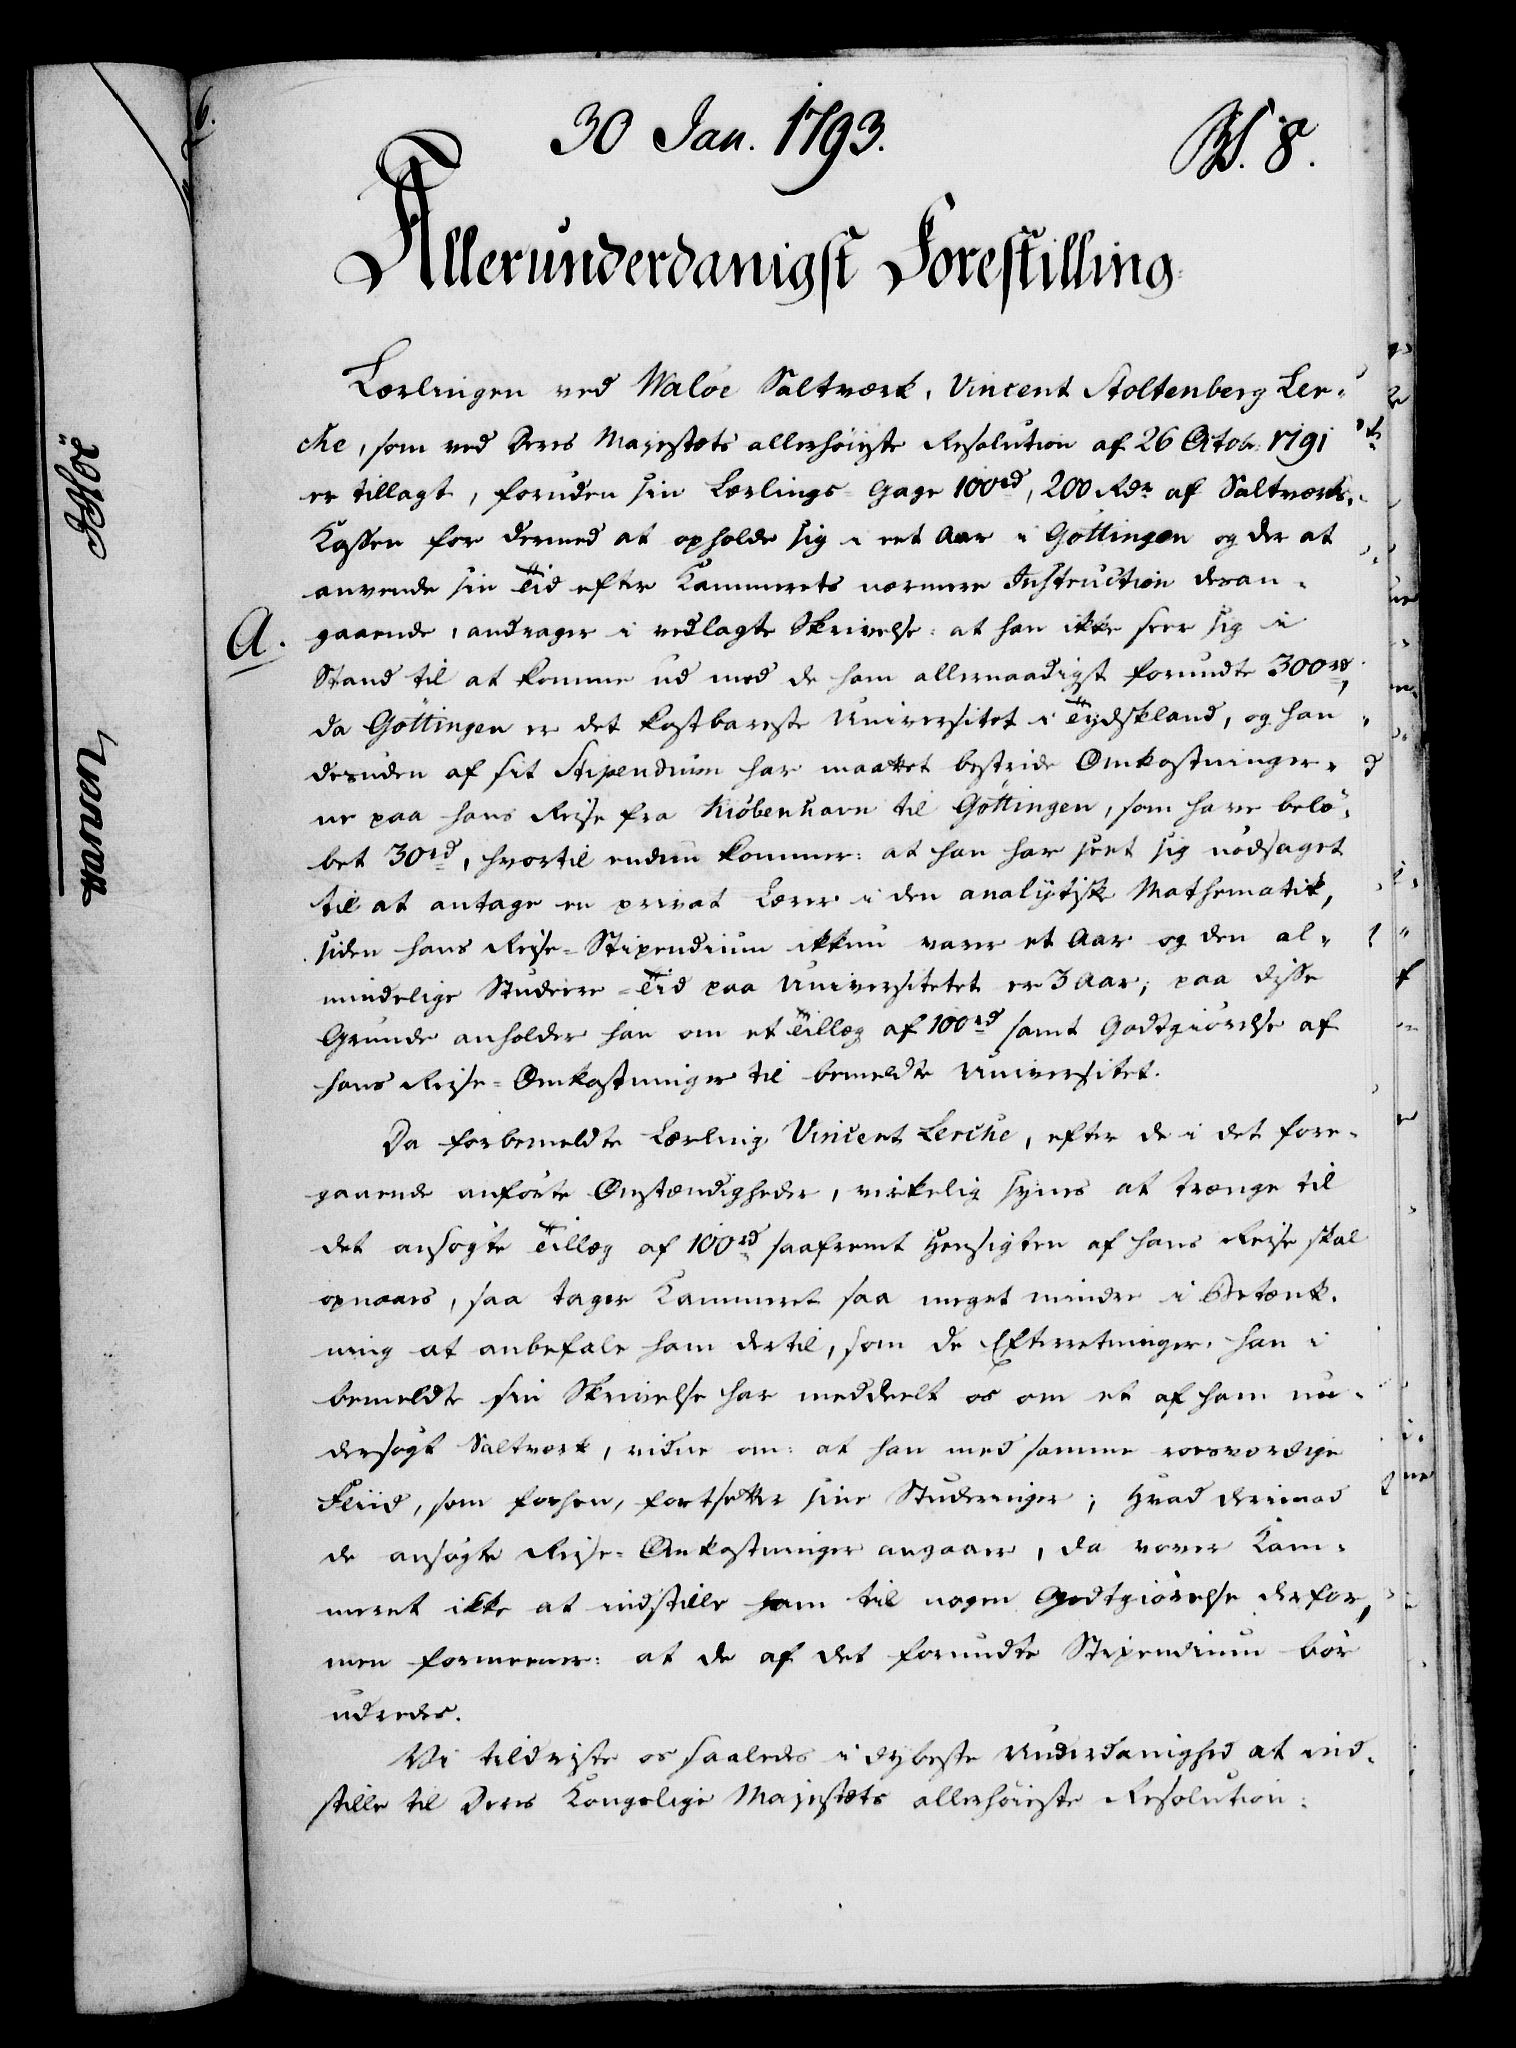 30 Jan. 1793.
Allerunderdanigst Forestilling
Lærlingen ved Waløe Saltværk, Vincent Stoltenberg Ler-
che, som ved Deres Majestæts allerhøieste Resolution af 26 Octobr. 1791
er tillagt, foruden sin Lærlings-Gage 100rd, 200 Rdr af Saltværks-
Kassen for dermed at opholde sig i eet Aar i Göttingen og der at
anvende sin Tid efter Kammerets nærmere Instruction desan-
A.
gaaende, andrager i vedlagte Skrivelse: at han ikke seer sig i
Stand til at komme ud med de ham allernaadigst forundte 300rd,
da Göttingen er det kostbareste Universitet i Tydskland, og han
desuden af sit Stipendium har maattet bestride Omkostninger-
ne paa hans Reise fra Kiöbenhavn til Göttingen, som have belö-
bet 30rd, hvortil endnu kommer: at han har seet sig nödsaget
til at antage en privat Lærer i den analytisk Mathematik,
siden hans Reise-Stipendium ikkun varer et Aar og den al-
mindelige Studere-Tid paa Universitetet er 3 Aar; paa disse
Grunde anholder han om et Tillæg af 100rd samt Godtgiörelse af
hans Reise-Omkostninger til bemeldte Universitet.
Da forbemeldte Lærling Vincent Lerche, efter de i det fore-
gaaende anförte Omstændigheder, virkelig synes at trænge til
det ansögte Tillæg af 100rd saafremt Hensigten af hans Reise skal
opnaaes, saa tager Kammeret saa meget mindre i Betænk-
ning at anbefale ham dertil, som de Efterretninger, han i
bemeldte sin Skrivelse har meddeelt os om et af ham un-
dersögt Saltværk, vidne om: at han med samme roesværdige
Fliid, som forhen, fortsetter sine Studeringer; Hvad derimod
de ansögte Reise-Omkostninger angaaer, da vover Kam-
meret ikke at indstille ham til nogen Godtgiörelse derfor,
men formeener: at de af det forundte Stipendium bör
udredes.
Vi tildriste os saaledes i dybeste Underdanighed at ind-
stille til Deres Kongelige Majestæts allerhöieste Resolution: